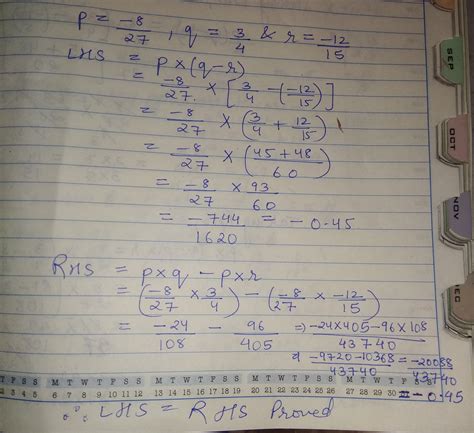 p = -8/27 , q = 3/4 & r = -12/15
LHS = p × (q - r)
= -8/27 × [3/4 - (-12/15)]
= -8/27 × (3/4 + 12/15)
= -8/27 × (45 + 48/60)
= -8/27 × 93/60
= -744/1620 = -0.45
RHS = p×q - p×r
= (-8/27 × 3/4) - (-8/27 × -12/15)
= -24/108 - 96/405 ⇒ -24×405-96×108/43740
⇒ -9720-10368/43740 = -20088/43740
= -0.45
∴ LHS = RHS Proved
SEP
OCT
NOV
T F S S M T W T F S S M T W T F S S M T W T F S S M T W T F S S M T
2 3 4 5 6 7 8 9 10 11 12 13 14 15 16 17 18 19 20 21 22 23 24 25 26 27 28 29 30 31